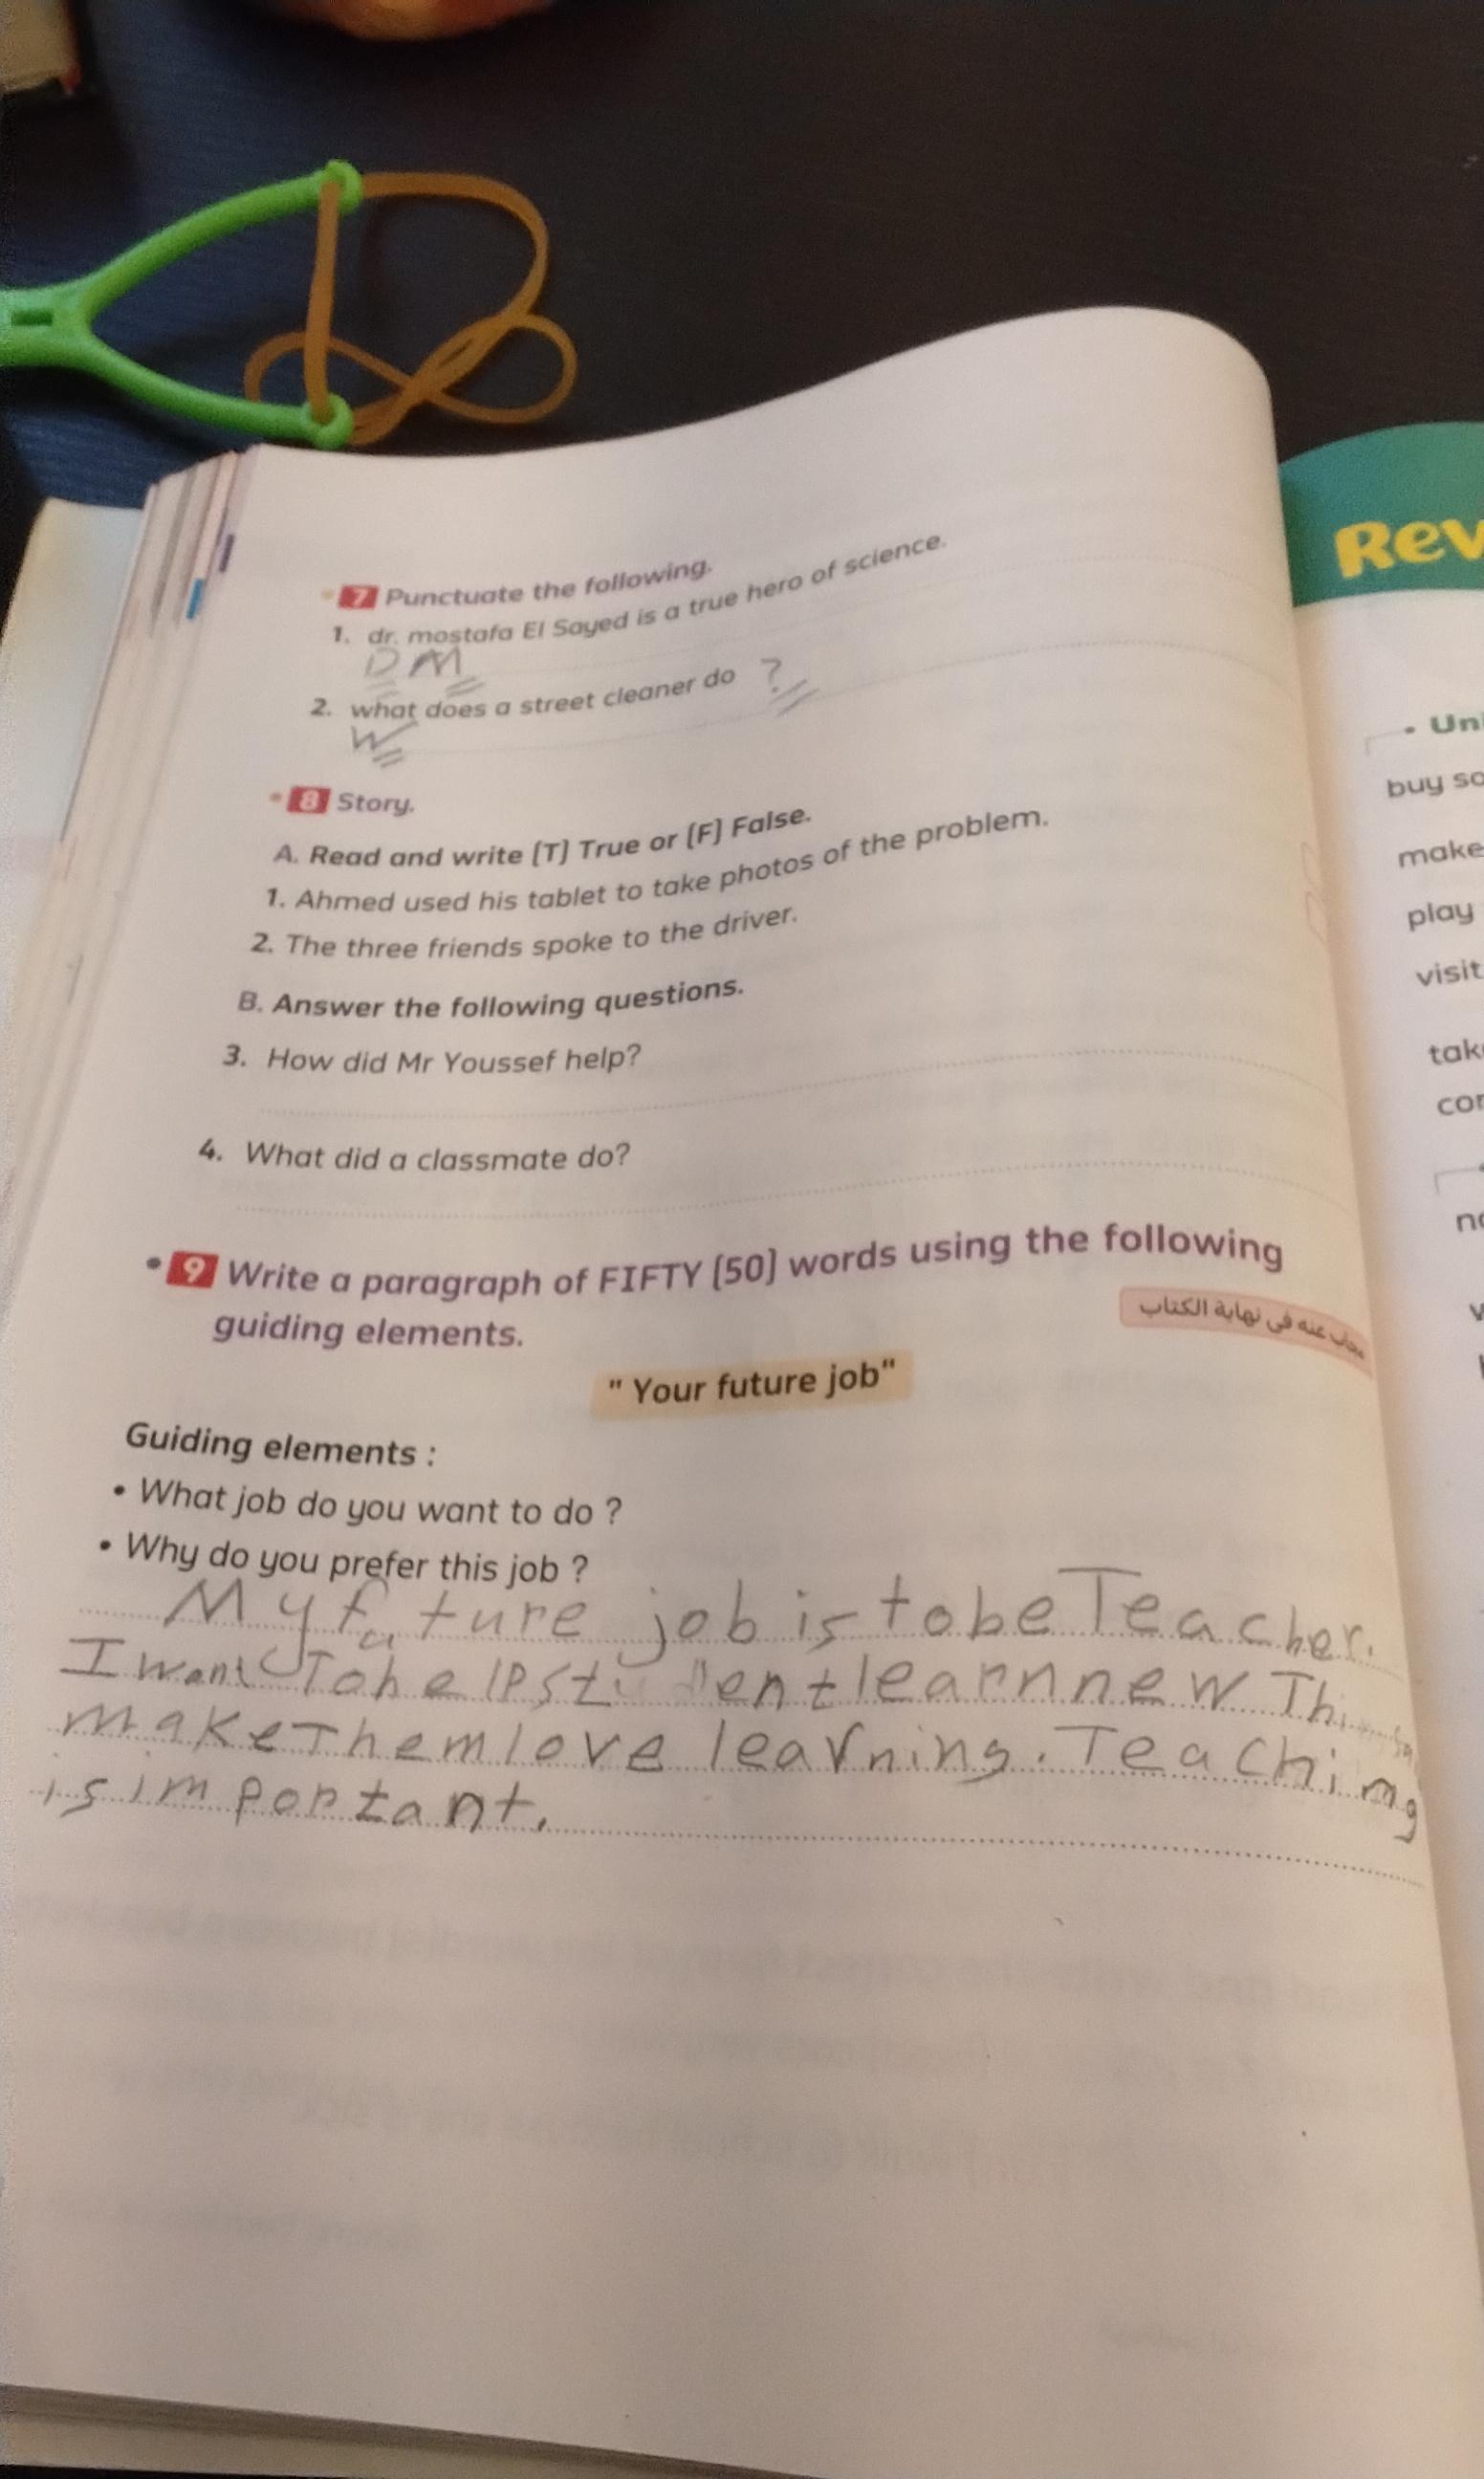 7 Punctuate the following.
1. dr. mostafa El Sayed is a true hero of science.
D M
2. what does a street cleaner do ?
W
8 Story.
A. Read and write (T) True or (F) False.
1. Ahmed used his tablet to take photos of the problem.
2. The three friends spoke to the driver.
B. Answer the following questions.
3. How did Mr Youssef help?
4. What did a classmate do?
• 9 Write a paragraph of FIFTY (50) words using the following
guiding elements.
مجاب عنه فى نهاية الكتاب
" Your future job"
Guiding elements :
• What job do you want to do ?
• Why do you prefer this job ?
My future job is to be Teacher.
I want To help student learn new
make Them love learning. Teaching
is important.
Rev
• Uni
buy so
make
play
visit
take
cor